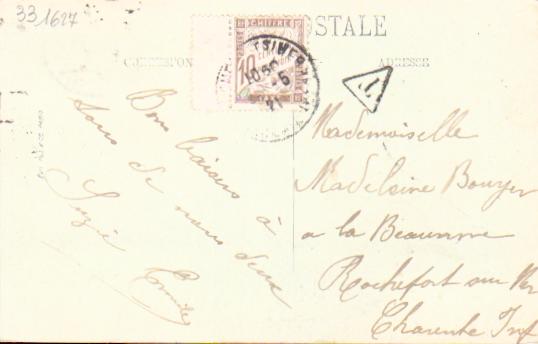 33 1627
POSTALE
CORRESPON
ADRESSE
CHIFFRE
10
T
Bons baisers à
tous de nous deux
Suzie
Emile
Mademoiselle
Madeleine Bouyer
a la Beaurone
Rochefort sur Mer
Charente Inf